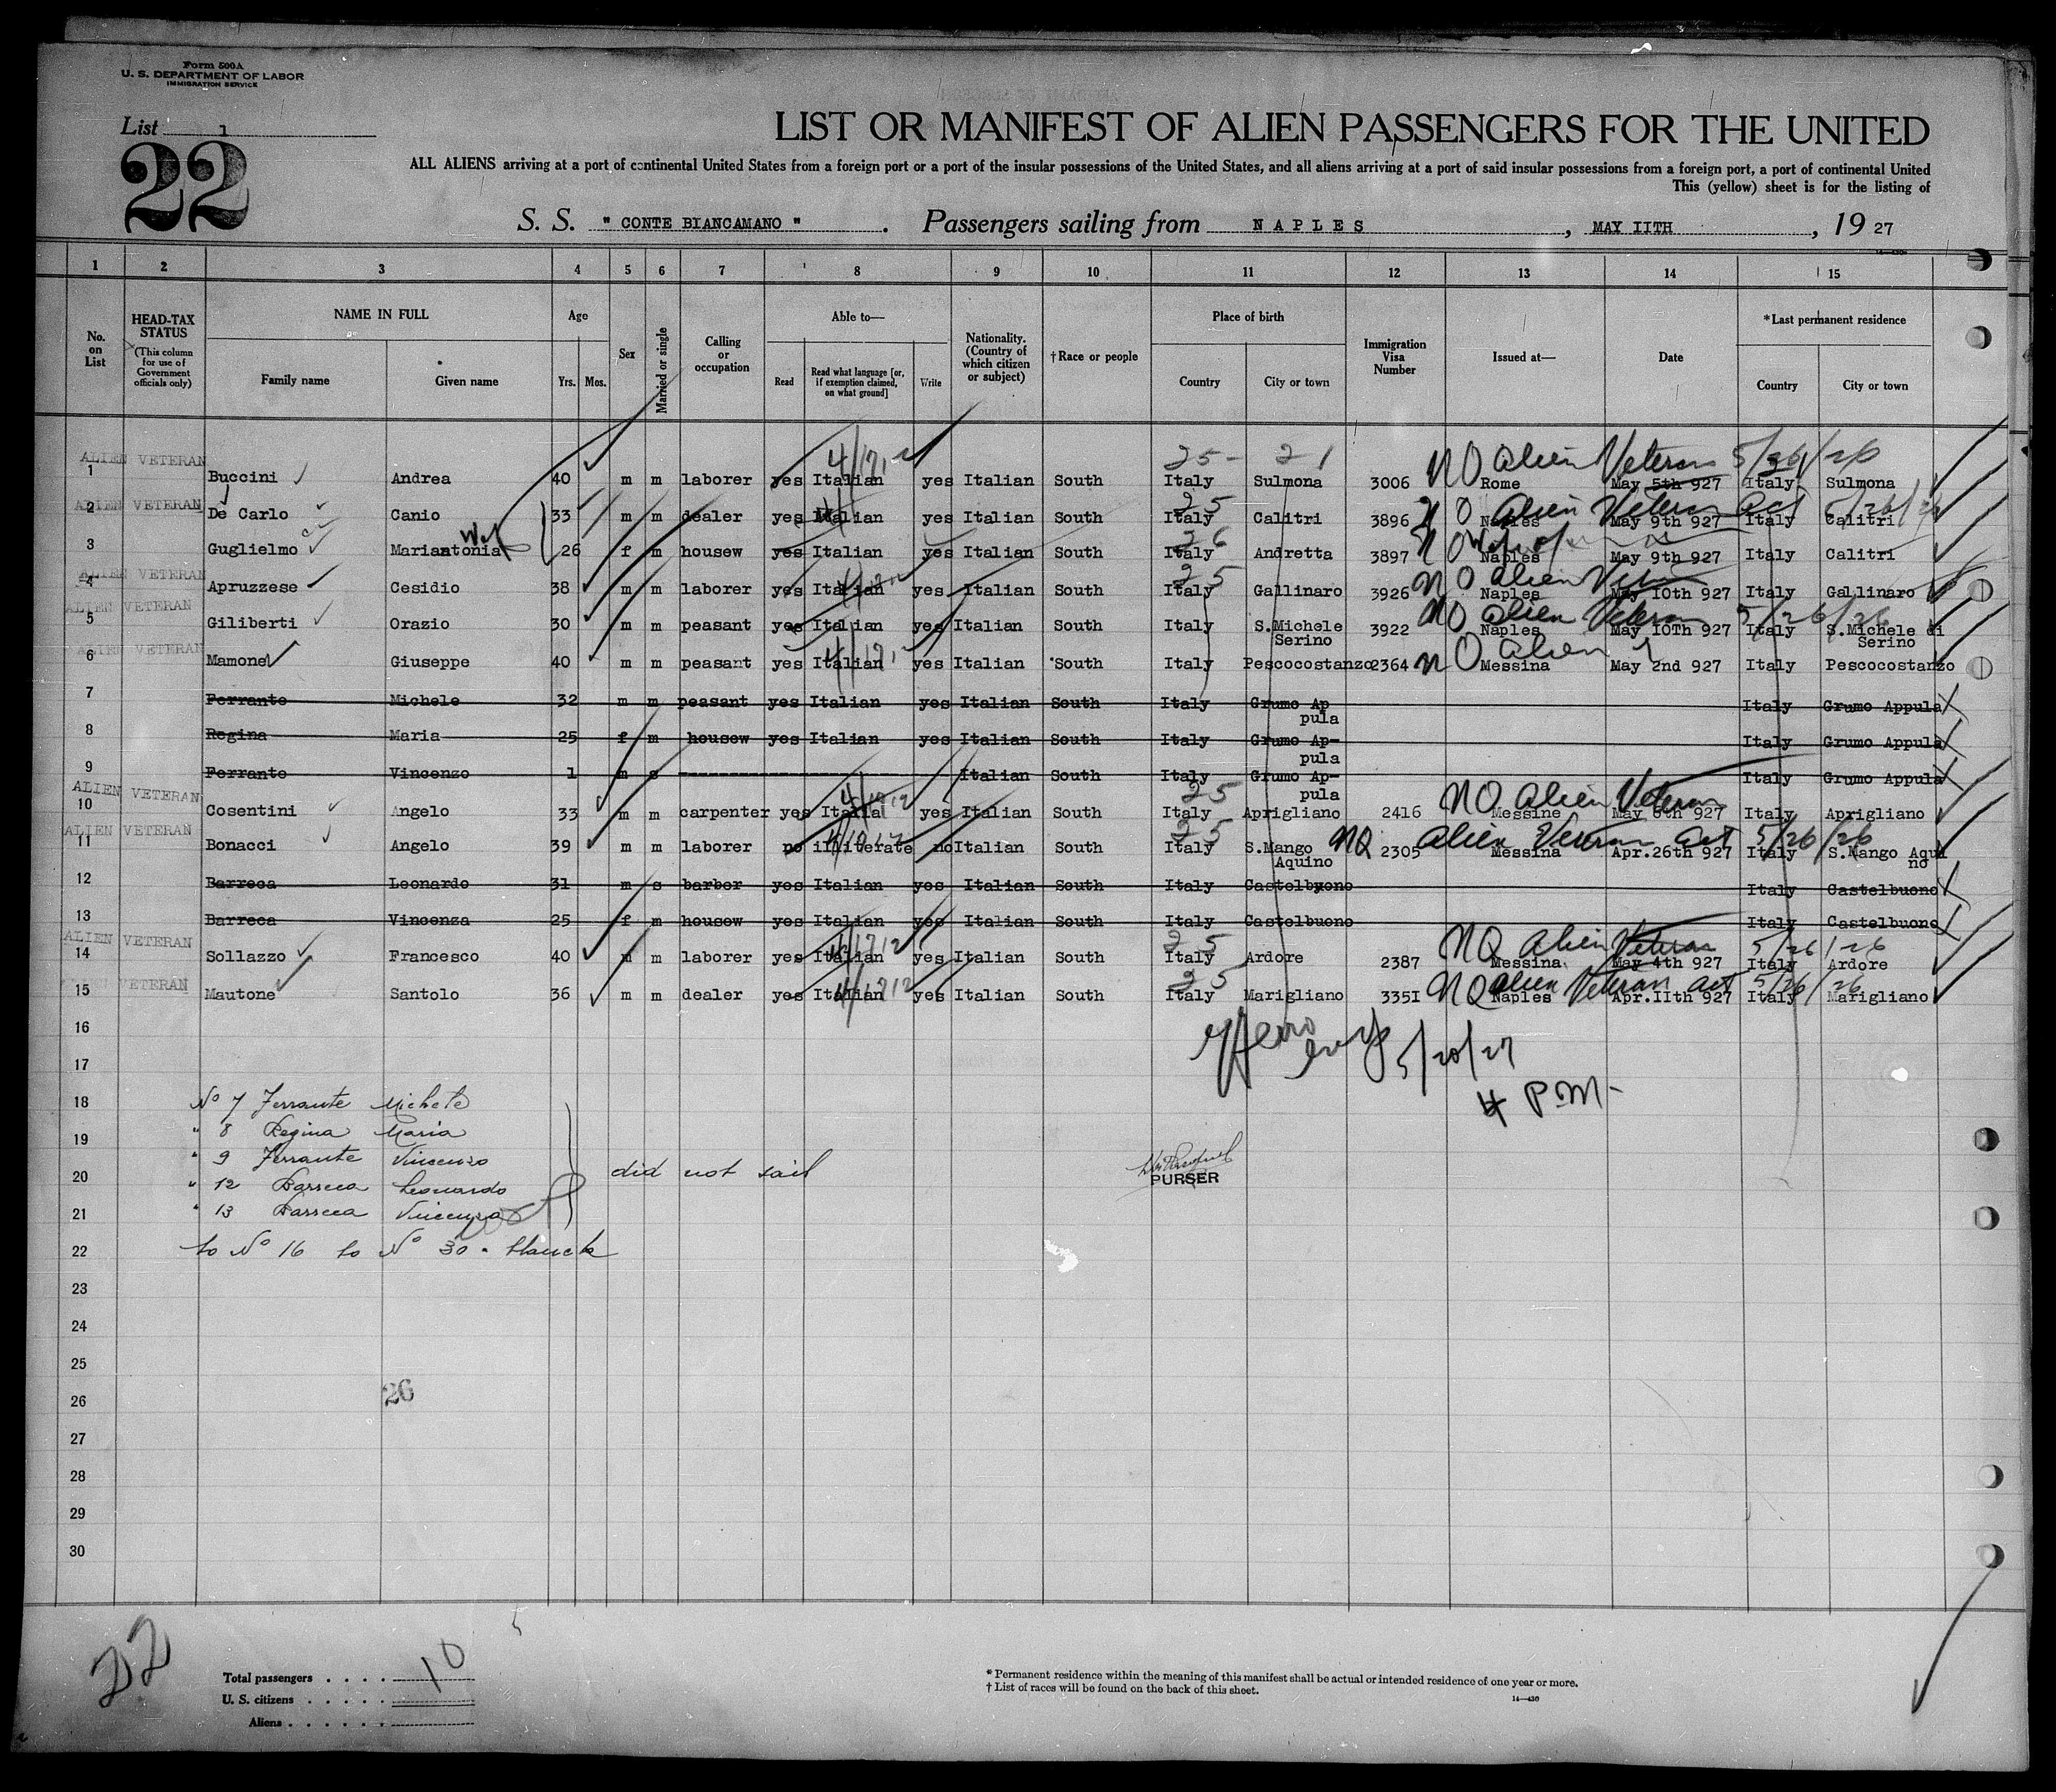 Form 500A
U. S. DEPARTMENT OF LABOR
IMMIGRATION SERVICE
List 1
22
LIST OR MANIFEST OF ALIEN PASSENGERS FOR THE UNITED
ALL ALIENS arriving at a port of continental United States from a foreign port or a port of the insular possessions of the United States, and all aliens arriving at a port of said insular possessions from a foreign port, a port of continental United
This (yellow) sheet is for the listing of
S. S. " CONTE BIANCAMANO ". Passengers sailing from NAPLES, MAY IITH, 19 27
1 2 3 4 5 6 7 8 9 10 11 12 13 14 15
No. on List
HEAD-TAX STATUS (This column for use of Government officials only)
NAME IN FULL
Family name
Given name
Age
Yrs. Mos.
Sex
Married or single
Calling or occupation
Able to—
Read
Read what language [or, if exemption claimed, on what ground]
Write
Nationality. (Country of which citizen or subject)
†Race or people
Place of birth
Country
City or town
Immigration Visa Number
Issued at—
Date
*Last permanent residence
Country
City or town
ALIEN VETERAN 25- 21 NO Alien Veteran 5/26/26
1 Buccini Andrea 40 m m laborer yes Italian yes Italian South Italy Sulmona 3006 Rome May 5th 927 Italy Sulmona
ALIEN VETERAN 25 Alien Veteran Act
2 De Carlo Canio 33 m m dealer yes Italian yes Italian South Italy Calitri 3896 Naples May 9th 927 Italy Calitri
3 Guglielmo Mariantonia 26 f m housew yes Italian yes Italian South Italy Andretta 3897 Naples May 9th 927 Italy Calitri
ALIEN VETERAN 25 NO Alien
4 Apruzzese Cesidio 38 m m laborer yes Italian yes Italian South Italy Gallinaro 3926 Naples May IOth 927 Italy Gallinaro
ALIEN VETERAN NO Alien Veteran 5/26/26
5 Giliberti Orazio 30 m m peasant yes Italian yes Italian South Italy S.Michele Serino 3922 Naples May IOTh 927 Italy S.Michele di Serino
ALIEN VETERAN NO Alien
6 Mamone Giuseppe 40 m m peasant yes Italian yes Italian South Italy Pescocostanzo 2364 Messina May 2nd 927 Italy Pescocostanzo
7 Ferrante Michele 32 m m peasant yes Italian yes Italian South Italy Grumo Ap pula Italy Grumo Appula
8 Regina Maria 25 f m housew yes Italian yes Italian South Italy Grumo Ap- pula Italy Grumo Appula
9 Ferrante Vincenzo 1 m s Italian South Italy Grumo Ap- pula Italy Grumo Appula
ALIEN VETERAN 25 NO Alien Veteran
10 Cosentini Angelo 33 m m carpenter yes Italia yes Italian South Italy Aprigliano 2416 Messine May 6th 927 Italy Aprigliano
ALIEN VETERAN 25 NO Alien Veteran Act 5/26/26
11 Bonacci Angelo 39 m m laborer no illiterate no Italian South Italy S.Mango Aquino 2305 Messina Apr.26th 927 Italy S.Mango Aqui no
12 Barreca Leonardo 31 m s barber yes Italian yes Italian South Italy Castelbuono Italy Castelbuono
13 Barreca Vincenza 25 f m housew yes Italian yes Italian South Italy Castelbuono Italy Castelbuono
ALIEN VETERAN 25 NO Alien Veteran 5/26/26
14 Sollazzo Francesco 40 m m laborer yes Italian yes Italian South Italy Ardore 2387 Messina May 4th 927 Italy Ardore
ALIEN VETERAN 25 NO Alien Veteran Act 5/26/26
15 Mautone Santolo 36 m m dealer yes Italian yes Italian South Italy Marigliano 335I Naples Apr.IIth 927 Italy Marigliano
16
5/20/27
17
4 P.M-
18 No 7 Ferrante Michele
" 8 Regina Maria
19
" 9 Ferrante Vincenzo
20 did not sail
PURSER
" 12 Barreca Leonardo
21 " 13 Barreca Vincenza
22 to No 16 to No 30 - blanck
23
24
25
26 26
27
28
29
30
22
Total passengers 10
U. S. citizens
Aliens
* Permanent residence within the meaning of this manifest shall be actual or intended residence of one year or more.
† List of races will be found on the back of this sheet.
14—430